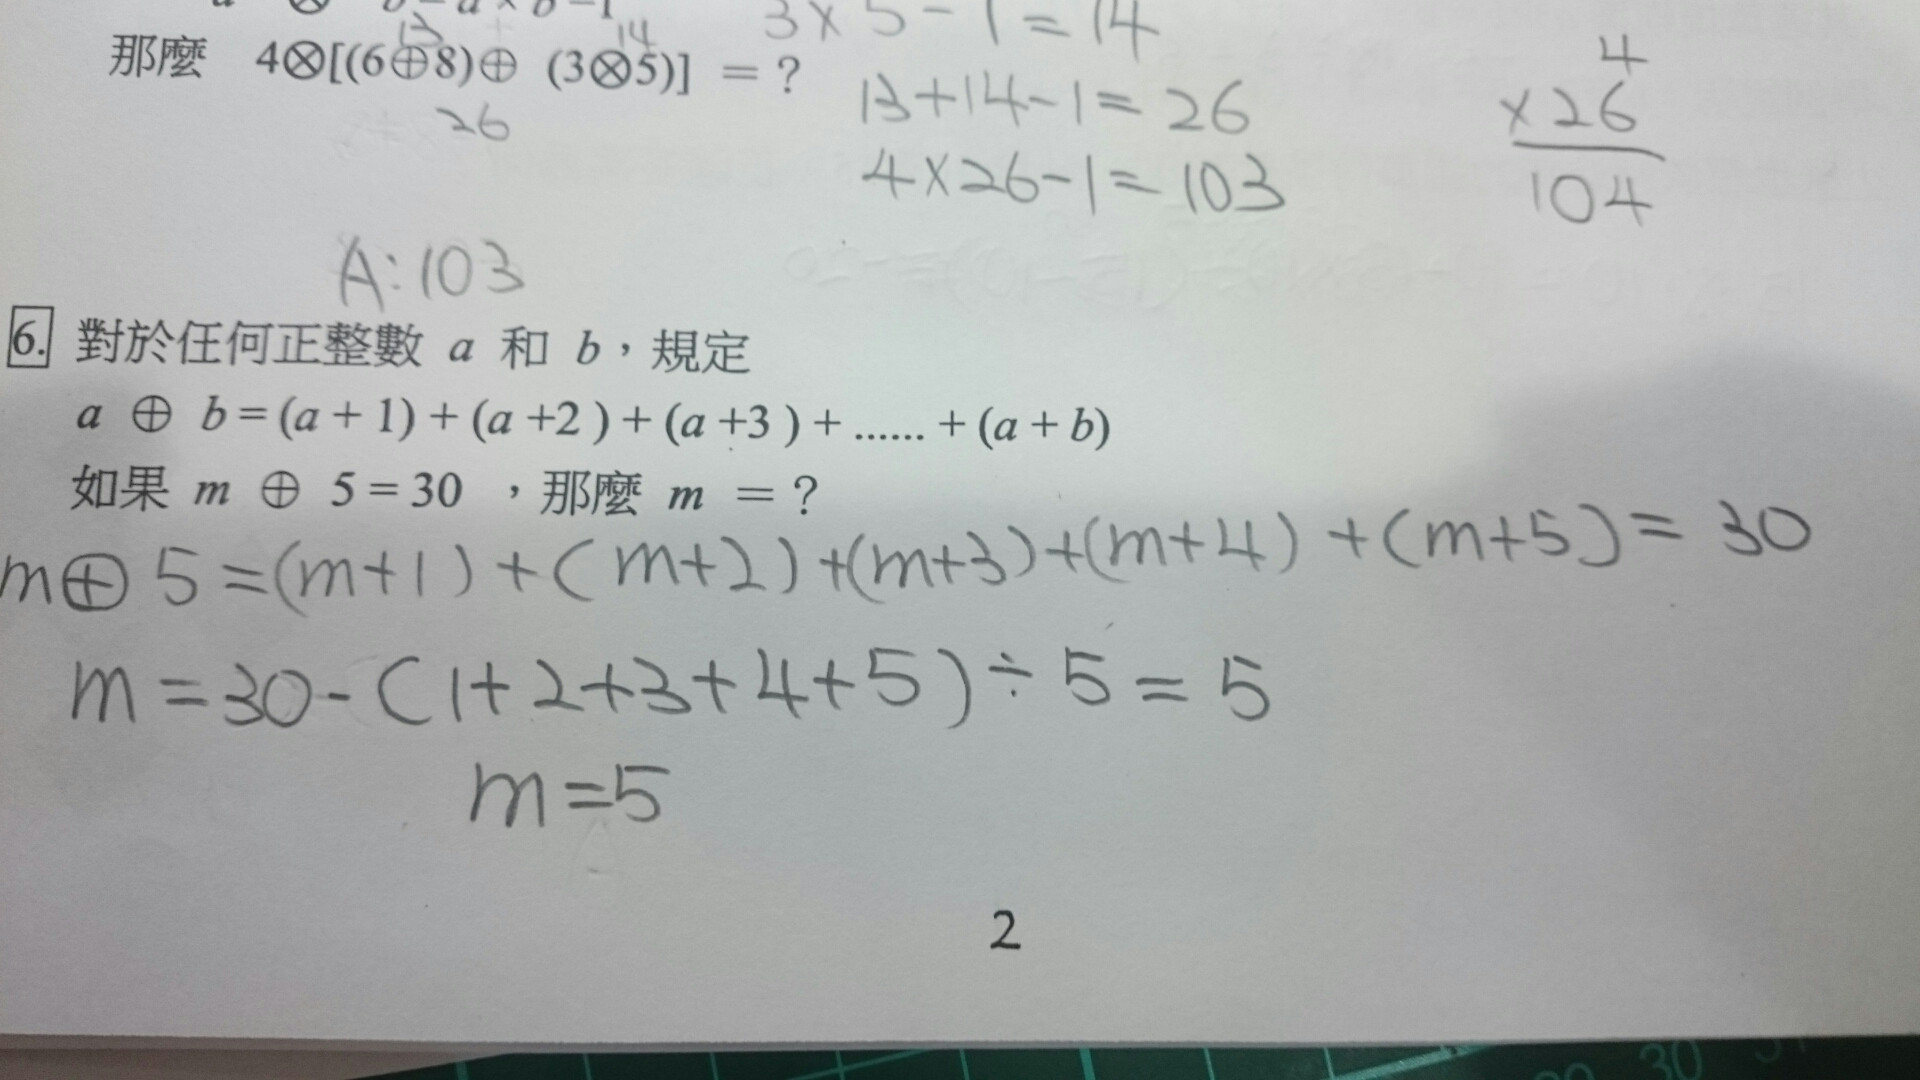 3 × 5 - 1 = 14
13 14
那麼 4⊗[(6⊕8)⊕ (3⊗5)] = ?
26
13+14-1= 26
4×26-1= 103
4
×26
104
A:103
6. 對於任何正整數 a 和 b，規定
a ⊕ b = (a + 1) + (a +2 ) + (a +3 ) + ...... + (a + b)
如果 m ⊕ 5 = 30 ，那麼 m = ?
m⊕ 5 =(m+1) +( m+2) +(m+3)+(m+4) +(m+5)= 30
m = 30-(1+2+3+4+5)÷5 = 5
m =5
2
30